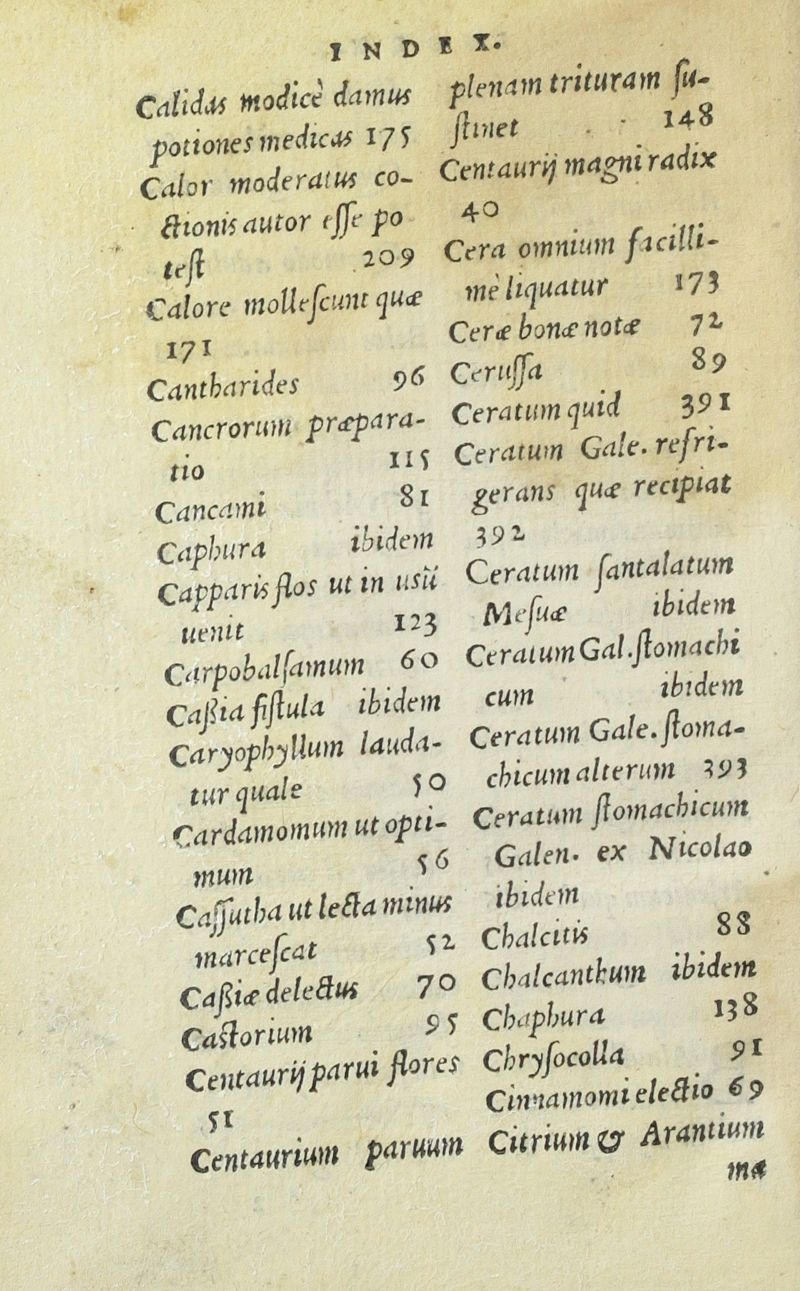 INDEX.
Calidas modicè damus
potiones medicas 175
Calor moderatus co-
ctionis autor eſſe po
teſt 209
Calore molleſcunt quæ
171
Cantharides 96
Cancrorum præpara-
tio 115
Cancami 81
Caphura ibidem
Capparis flos ut in usū
uenit 123
Carpobalſamum 60
Caßia fiſtula ibidem
Caryophyllum lauda-
tur quale 50
Cardamomum ut opti-
mum 56
Caſſutha ut lecta minus
marceſcat 52
Caßiæ delectus 70
Caſtorium 95
Centaurij parui flores
51
Centaurium paruum
plenam trituram ſu-
ſtinet 148
Centaurij magni radix
40
Cera omnium facilli-
mè liquatur 173
Ceræ bonæ notæ 72
Ceruſſa 89
Ceratum quid 391
Ceratum Gale. refri-
gerans quæ recipiat
392
Ceratum ſantalatum
Meſuæ ibidem
Ceratum Gal. ſtomachi
cum ibidem
Ceratum Gale. ſtoma-
chicum alterum 393
Ceratum ſtomachicum
Galen. ex Nicolao
ibidem
Chalcitis 88
Chalcanthum ibidem
Chaphura 138
Chryſocolla 91
Cinnamomi electio 69
Citrium & Arantium
ma